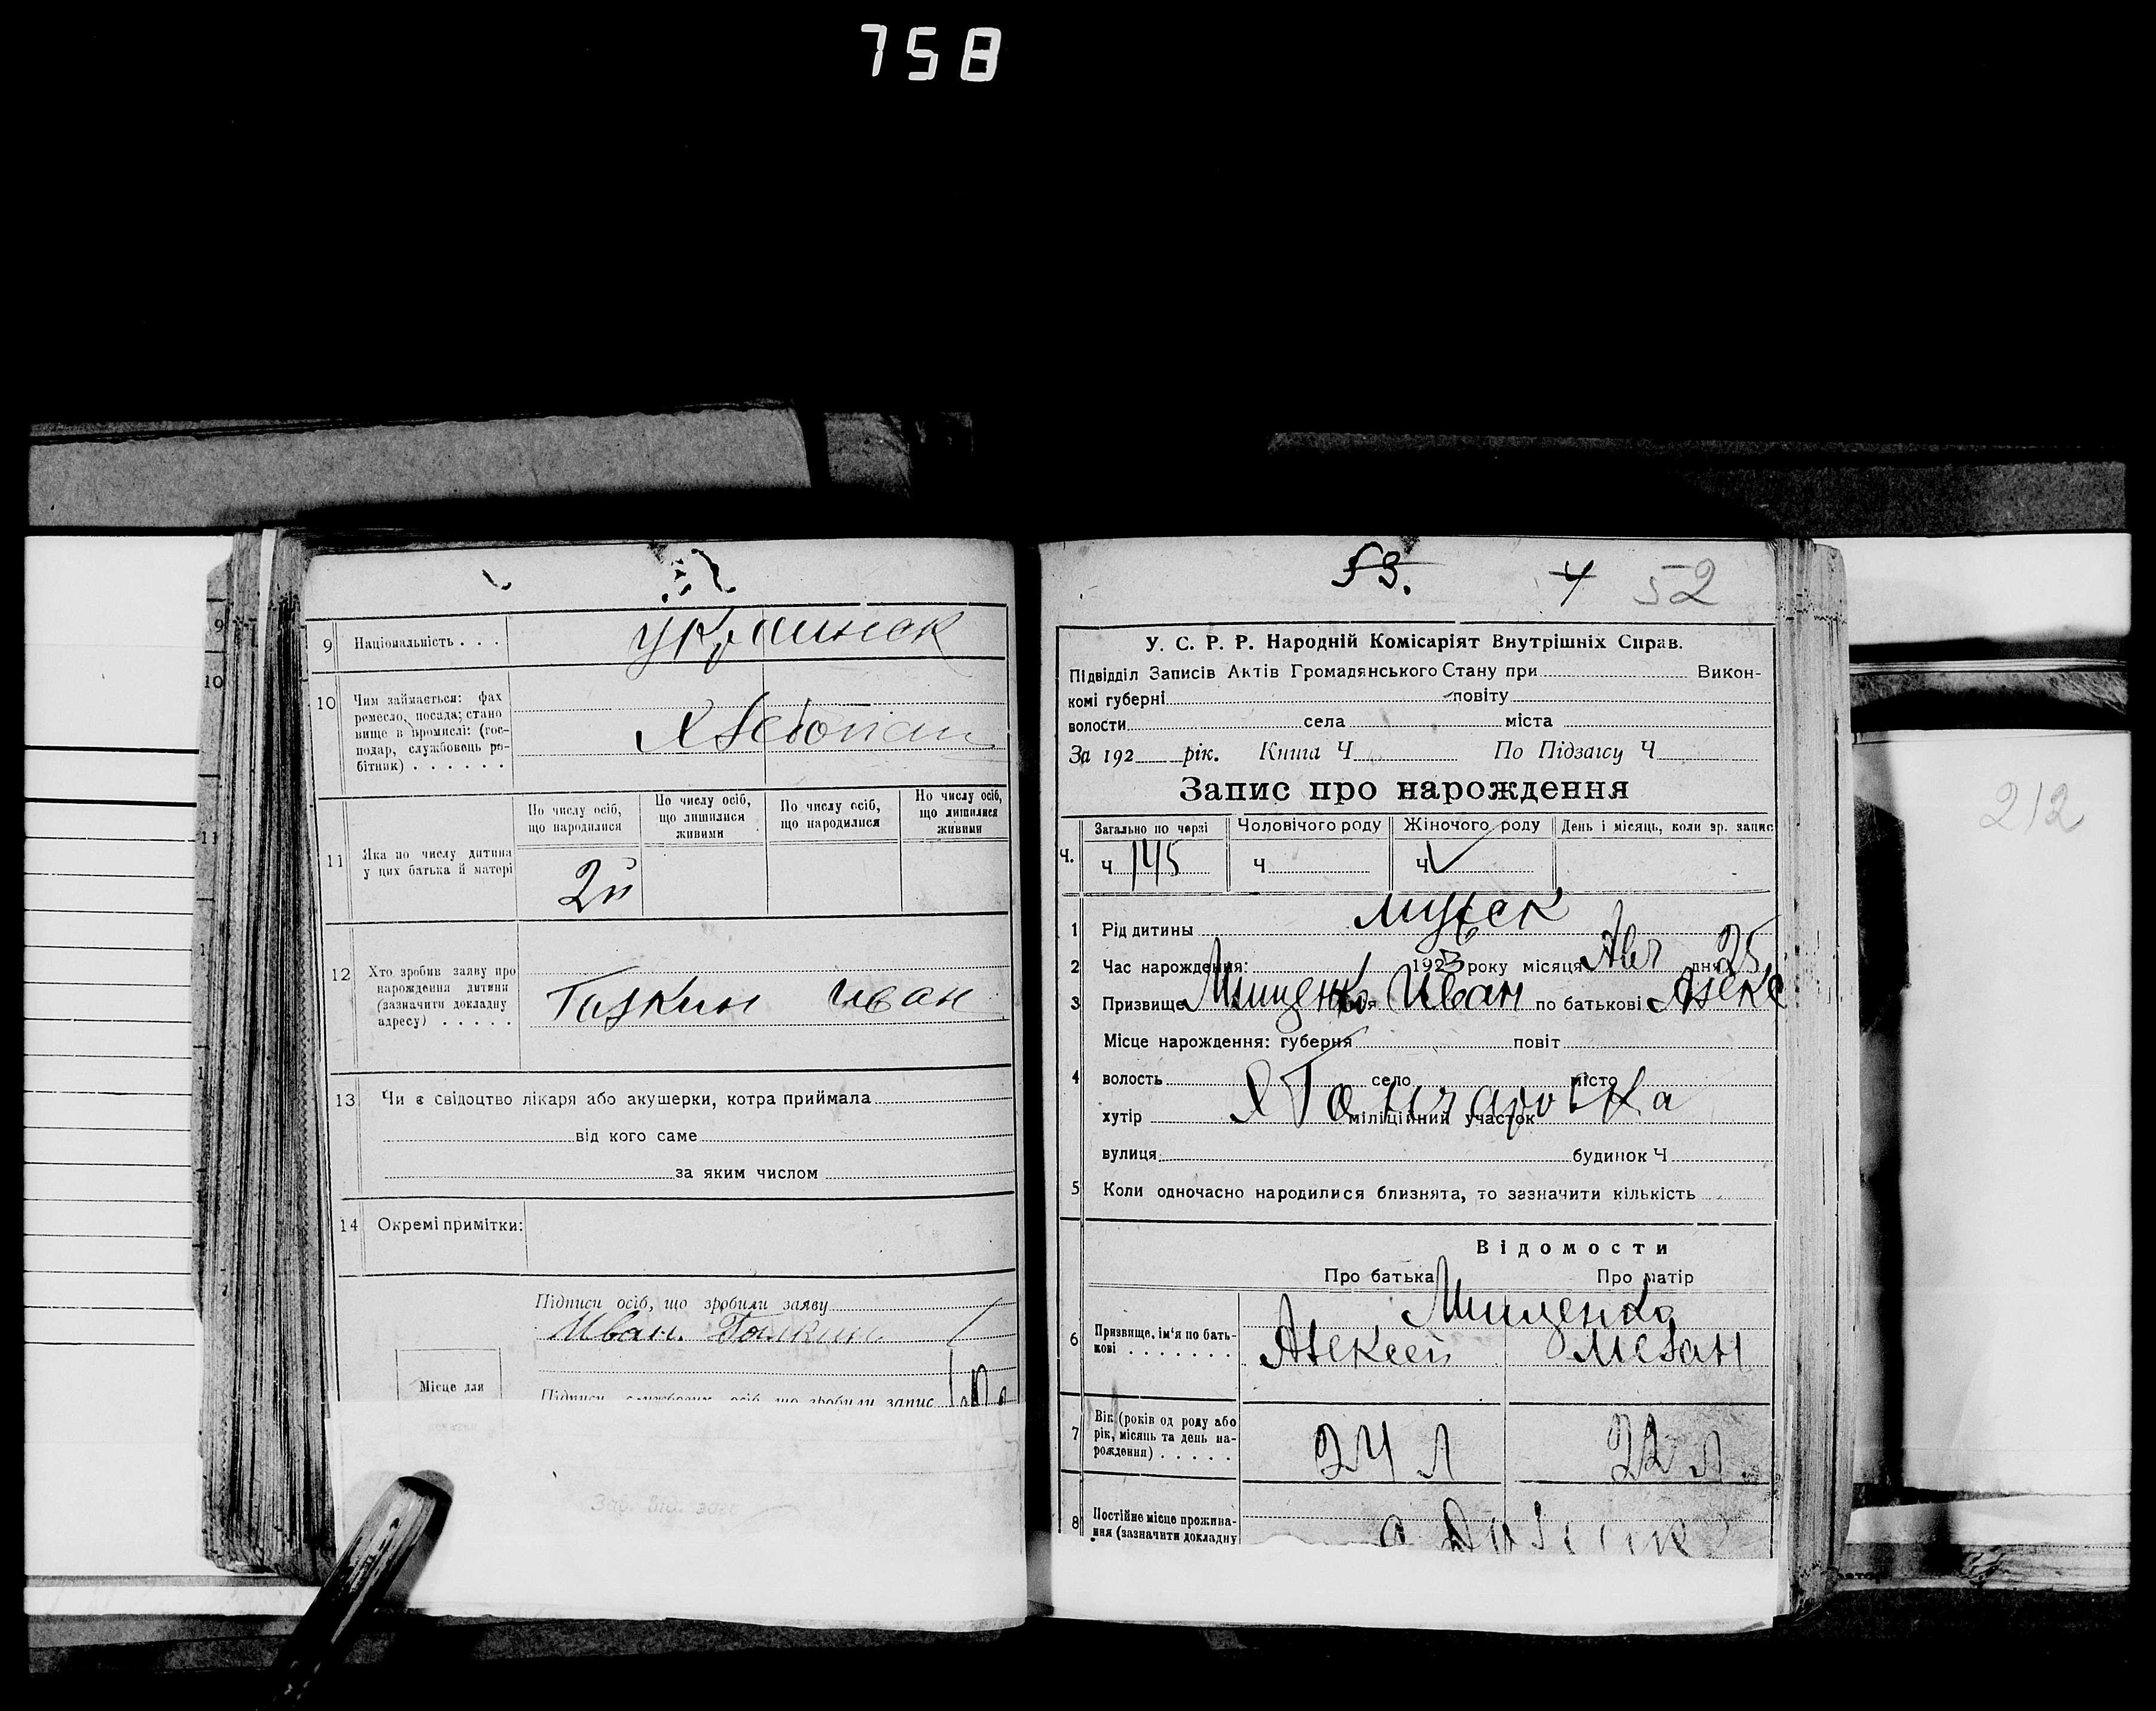 758
9 Національність . . .
Украинск
10 Чим займається: фах
ремесло, посада; стано
вище в промислі: (гос-
подар, службовець ро-
бітник) . . . . . .
11 Яка по числу дитина
у цих батька й матері
По числу осіб,
що народилися
По числу осіб,
що лишилися
живими
По числу осіб,
що народилися
По числу осіб,
що лишилися
живими
2й
12 Хто зробив заяву про
нарождення дитини
(зазначити докладну
адресу) . . . . .
Галкин Иван
13 Чи є свідоцтво лікаря або акушерки, котра приймала
від кого саме
за яким числом
14 Окремі примітки:
Підписи осіб, що зробили заяву
Иван Галкин
Місце для
Підписи службових осіб що зробили запис
9
10
11
53. 4 52
У. С. Р. Р. Народній Комісаріят Внутрішніх Справ.
Підвідділ Записів Актів Громадянського Стану при Викон-
комі губерні повіту
волости села міста
За 192 рік. Книга Ч По Підзапису Ч
Запис про нарождення
Ч.
Загально по черзі Чоловічого роду Жіночого роду День і місяць, коли зр. запис
Ч 145 Ч Ч
1 Рід дитини мужск
2 Час нарождення: 1923 року місяця Авг дня 25
3 Призвище Мищенко ім'я Иван по батькові Алекс
Місце нарождення: губерня повіт
4 волость село місто
хутір міліційний участок
вулиця будинок Ч
5 Коли одночасно народилися близнята, то зазначити кількість
Відомости
Про батька Про матір
Мищенко
6 Призвище, ім'я по бать-
кові . . . . . . .
Алексей
7 Вік (років од роду або
рік, місяць та день на-
рождення) . . . . .
24 л 22 л.
8 Постійне місце прожива-
ння (зазначити докладну
212